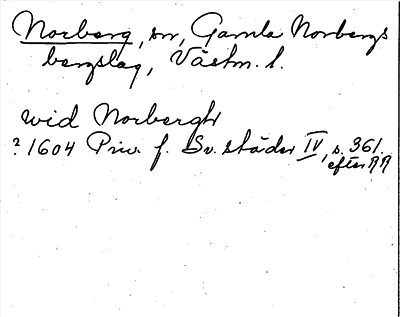 Norberg, sn, Gamla Norbergs
bergslag, Västm. l.
wid Norbergh
? 1604 Priv. f. Sv. städer IV, s. 361.
efter RR